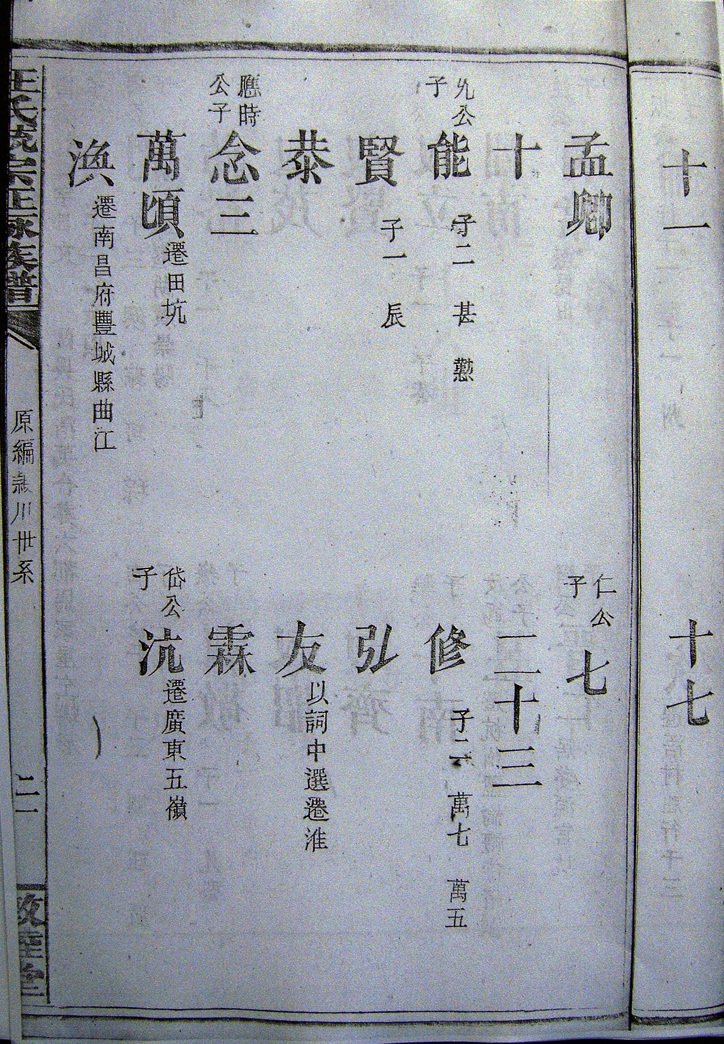 十一
十七
孟卿
十
允公子
能 子二 甚 懃
賢 子一 辰
恭
應時公子
念三
萬頃 遷田坑
渙 遷南昌府豐城縣曲江
仁公子
七
二十三
修 子二 萬七 萬五
弘
友 以詞中選遷淮
霖
岱公子
沆 遷廣東五嶺
汪氏統宗正脉族譜
原編 川世系
二一
敦睦堂